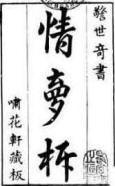 警世奇書
情夢柝
嘯花軒藏板